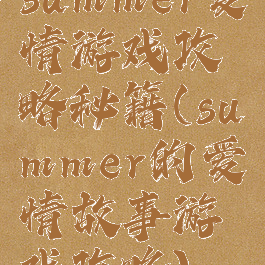 summer爱
情游戏攻
略秘籍(su
mmer的爱
情故事游
戏攻略)